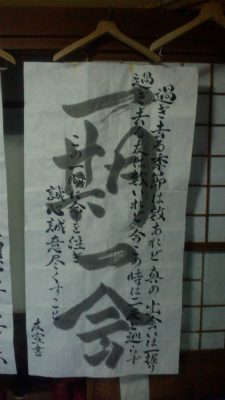 一期一会
過ぎ去る季節は数あれど真の出会は一握り
過ぎ去る友は数いれど今この時は二度と巡らず
この一瞬に命を注ぎ
誠心誠意尽くすこと